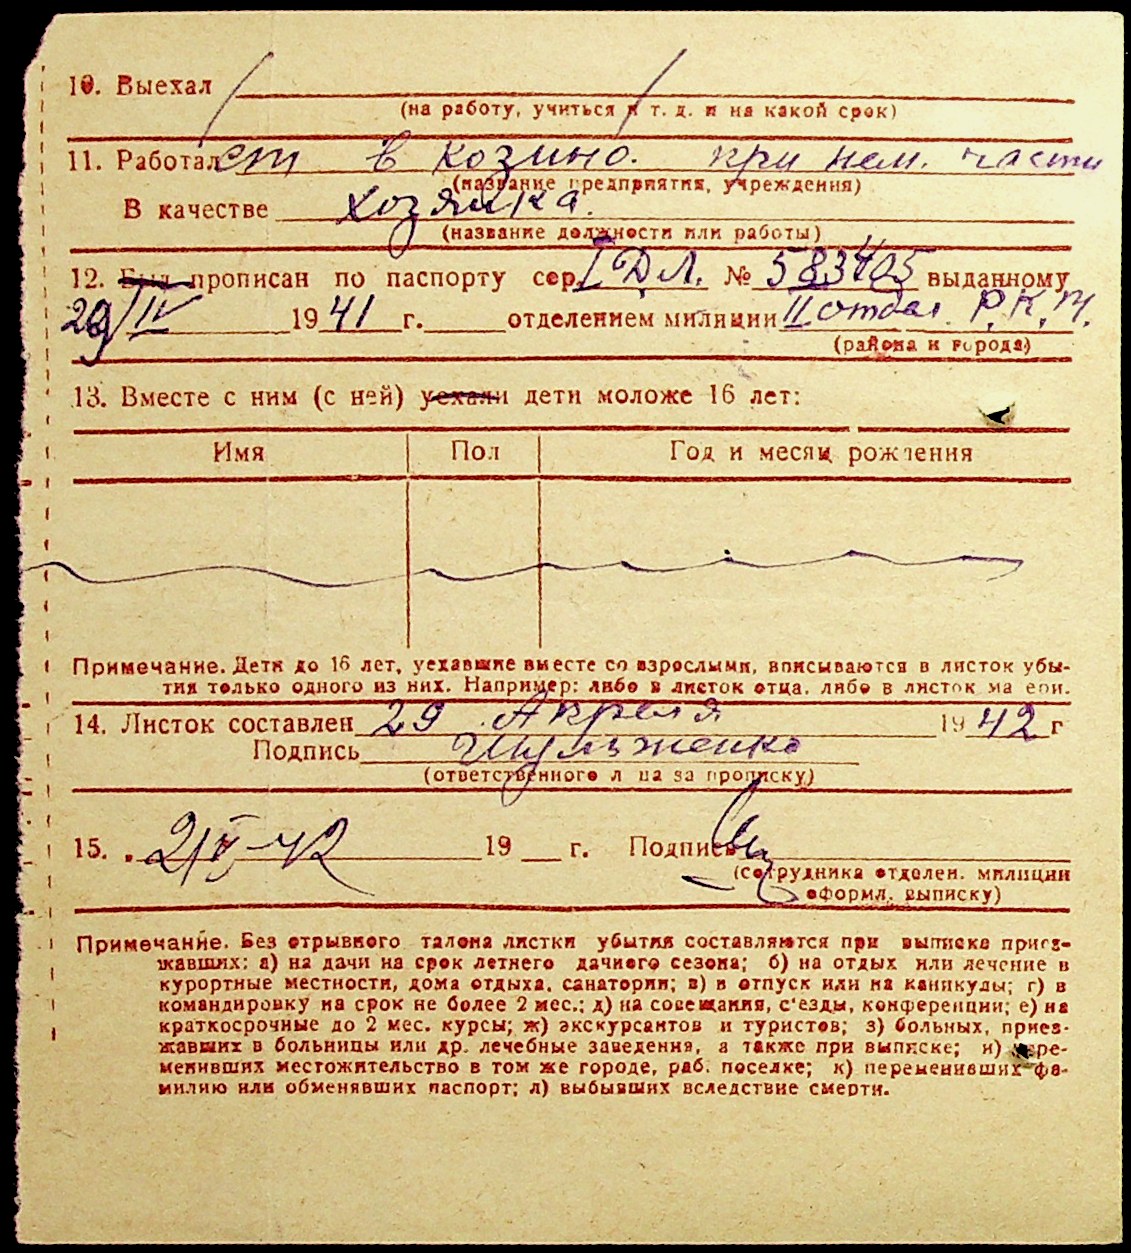 10. Выехал
(на работу, учиться и т. д. и на какой срок)
11. Работает в козино. при нем. части
(название предприятия, учреждения)
В качестве хозяйка.
(название должности или работы)
12. Был прописан по паспорту сер. I ДЛ. № 583405 выданному
29/IV 1941 г. отделением милиции II отдел Р.К.М.
(района и города)
13. Вместе с ним (с ней) уехали дети моложе 16 лет:
Имя Пол Год и месяц рождения
Примечание. Дети до 16 лет, уехавшие вместе со взрослыми, вписываются в листок убы-
тия только одного из них. Например: либо в листок отца, либо в листок ма ери.
14. Листок составлен 29 Апреля 1942 г
Подпись
(ответственного л ца за прописку)
15. 2/V-42 19 г. Подпись
(сотрудника отделен. милиции
оформл. выписку)
Примечание. Без отрывного талона листки убытия составляются при выписке приез-
жавших: а) на дачи на срок летнего дачного сезона; б) на отдых или лечение в
курортные местности, дома отдыха, санатории; в) в отпуск или на каникулы; г) в
командировку на срок не более 2 мес.; д) на совещания, с'езды, конференции; е) на
краткосрочные до 2 мес. курсы; ж) экскурсантов и туристов; з) больных, приез-
жавших в больницы или др. лечебные заведения, а также при выписке; и) пере-
менивших местожительство в том же городе, раб. поселке; к) переменивших фа-
милию или обменявших паспорт; л) выбывших вследствие смерти.